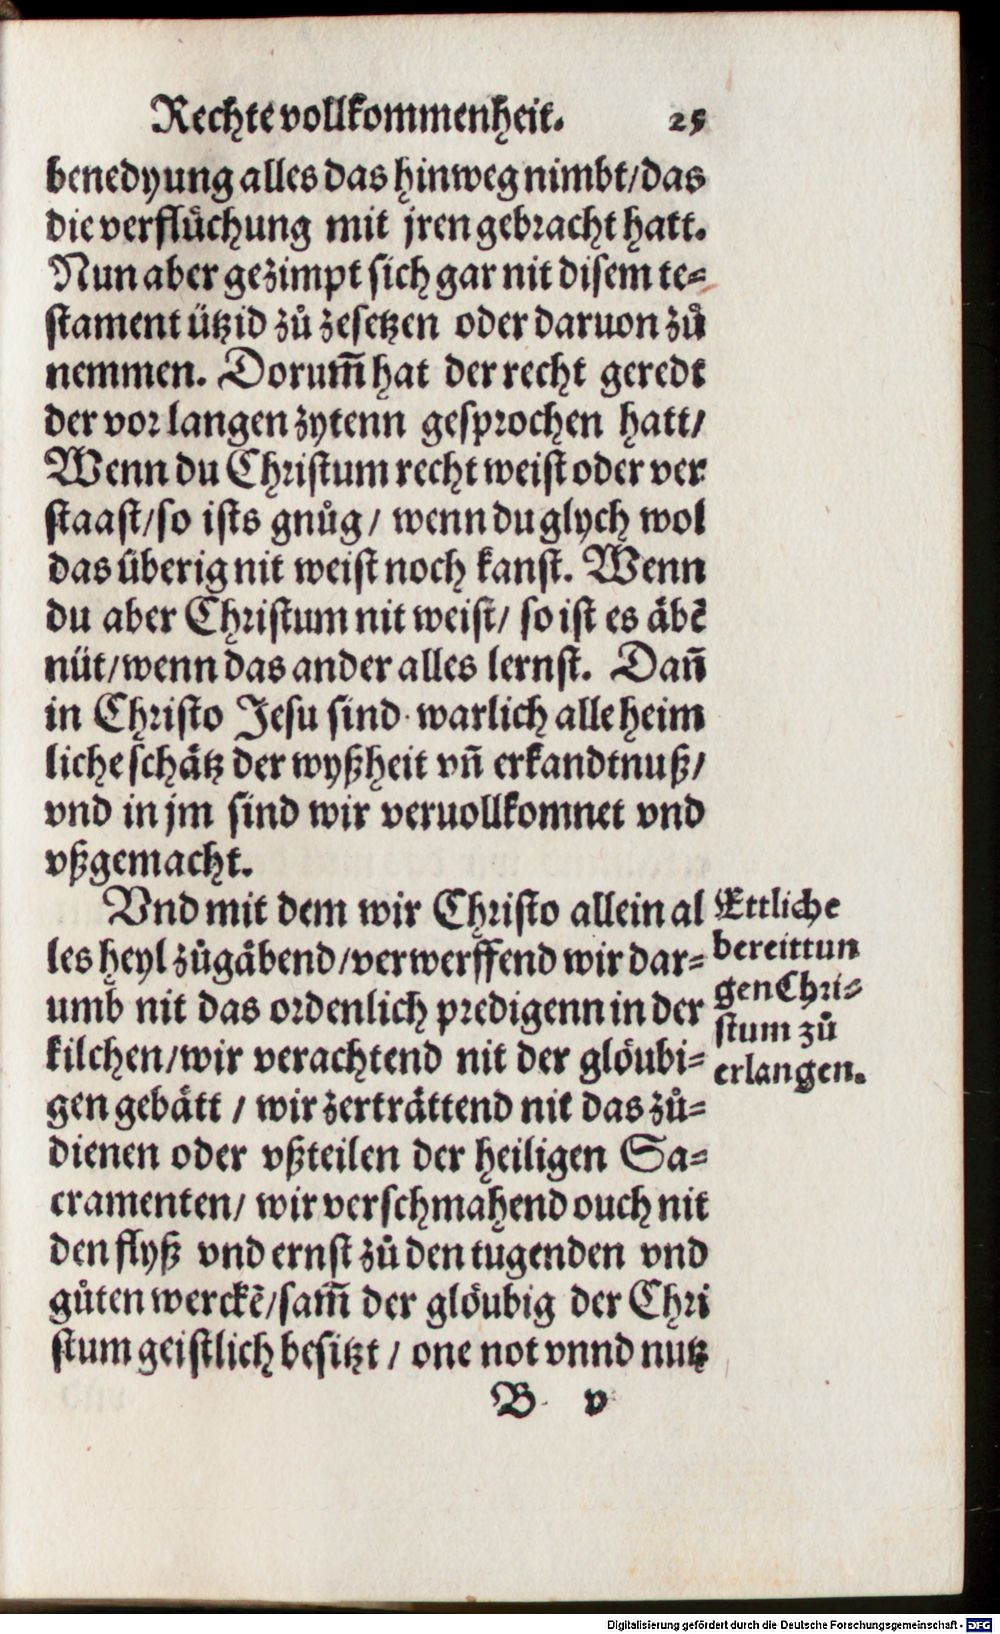 Rechte vollkommenheit. 25
benedyung alles das hinweg nimbt/das
die verflůchung mit jren gebracht hatt.
Nun aber gezimpt sich gar nit disem te-
stament ützid zů zesetzen oder daruon zů
nemmen. Dorum̄ hat der recht geredt
der vor langen zytenn gesprochen hatt/
Wenn du Christum recht weist oder ver
staast/so ists gnůg/ wenn du glych wol
das überig nit weist noch kanst. Wenn
du aber Christum nit weist/ so ist es äbē
nüt/wenn das ander alles lernst. Dañ
in Christo Jesu sind warlich alle heim
liche schätz der wyßheit vñ erkandtnuß/
vnd in jm sind wir veruollkomnet vnd
vßgemacht.
Vnd mit dem wir Christo allein al
les heyl zůgäbend/verwerffend wir dar-
umb nit das ordenlich predigenn in der
kilchen/wir verachtend nit der glöubi-
gen gebätt / wir zerträttend nit das zů-
dienen oder vßteilen der heiligen Sa-
cramenten/ wir verschmahend ouch nit
den flyß vnd ernst zů den tugenden vnd
gůten werckē/sam̄ der glöubig der Chri
stum geistlich besitzt / one not vnnd nutz
B v
Ettliche
bereittun
gen Chri-
stum zů
erlangen.
Digitalisierung gefördert durch die Deutsche Forschungsgemeinschaft - DFG